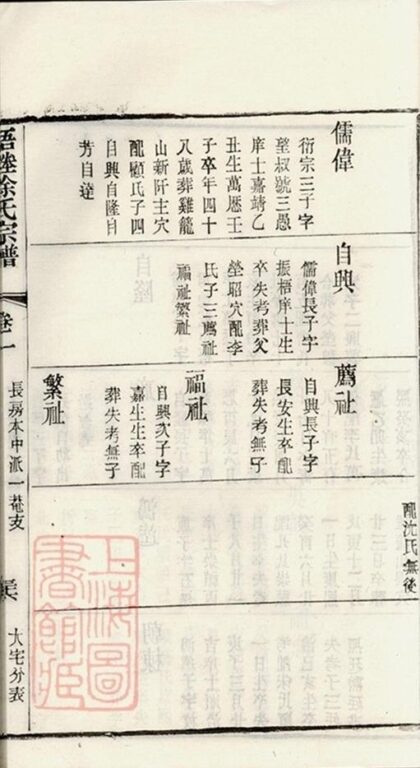 儒偉
衍宗三子字
望叔號三愚
庠士嘉靖乙
丑生萬曆壬
子卒年四十
八歲葬雞龍
山新阡主穴
配顧氏子四
自興自隆自
芳自達
自興
儒偉長子字
振梧庠士生
卒失考葬父
塋昭穴配李
氏子三薦祉
福祉繁祉
薦祉
自興長子字
長安生卒配
葬失考無子
福祉
自興次子字
嘉生生卒配
葬失考無子
繁祉
配沈氏無後
梧塍徐氏宗譜
卷一
長房本中派一菴支
大宅分表
上海圖
書館藏